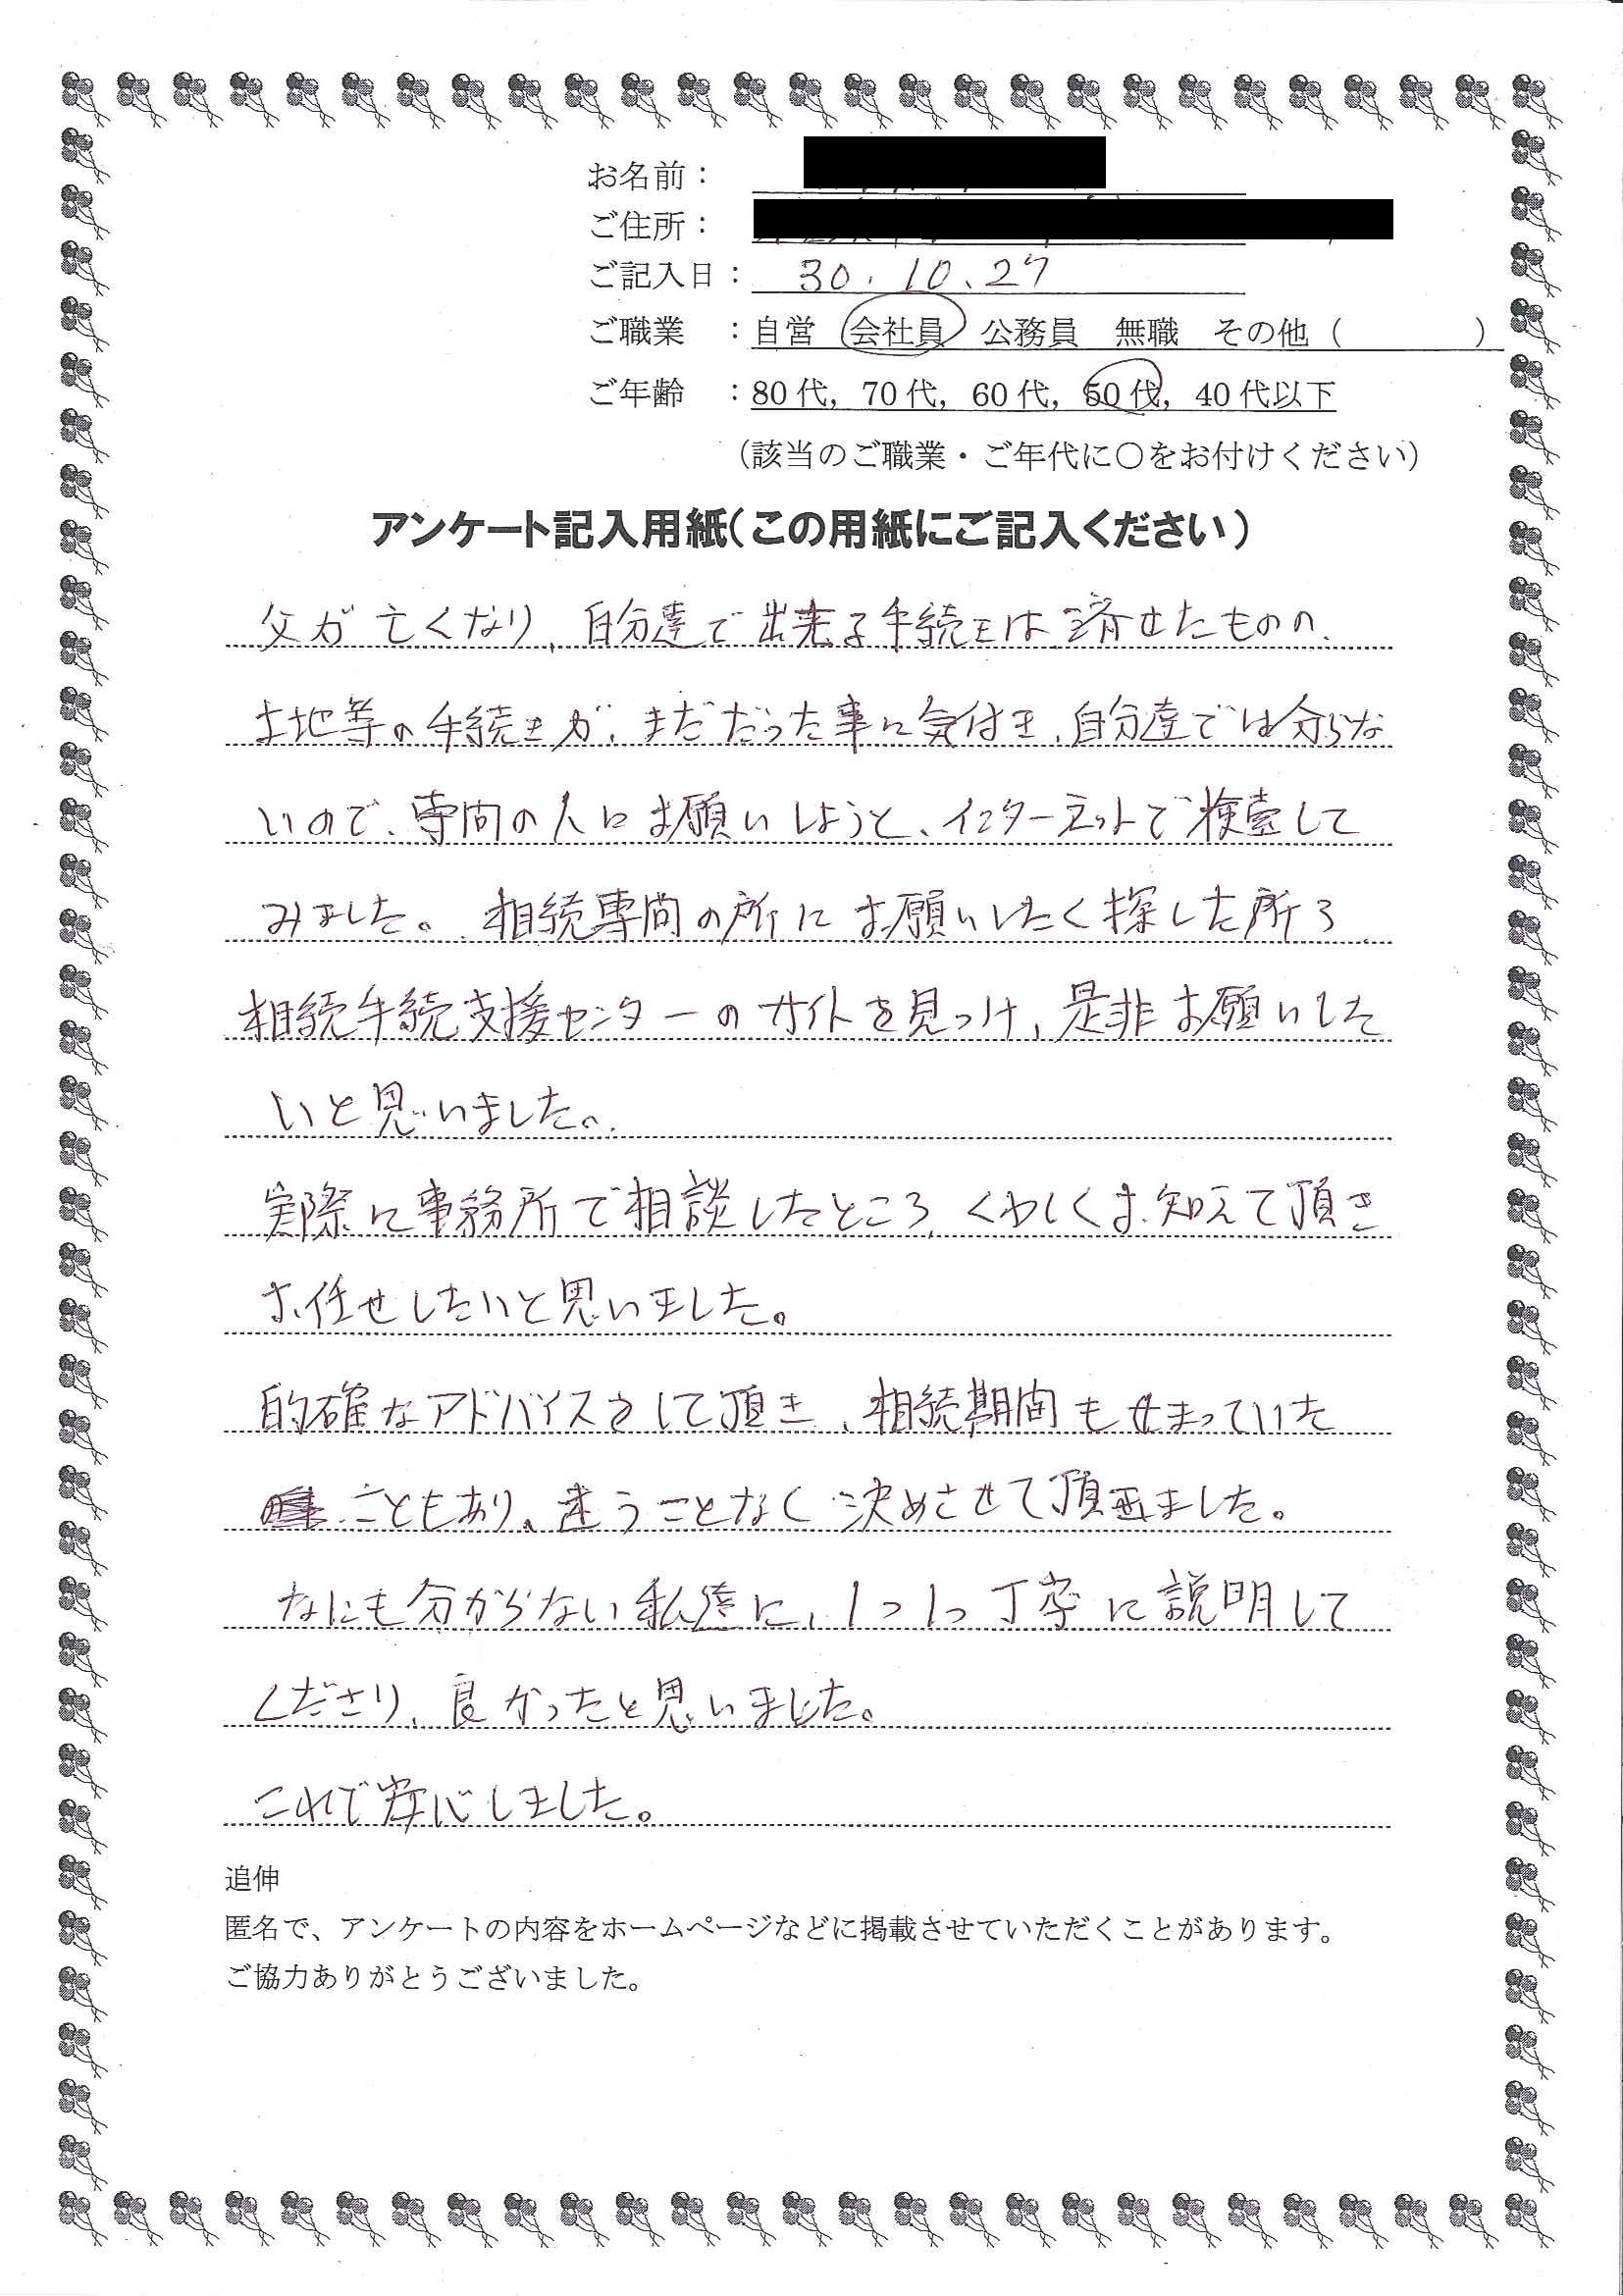 お名前：
ご住所：
ご記入日： 30.10.27
ご職業 ：自営 会社員 公務員 無職 その他（ ）
ご年齢 ：80代，70代，60代，50代，40代以下
（該当のご職業・ご年代に○をお付けください）
アンケート記入用紙（この用紙にご記入ください）
父が亡くなり、自分達で出来る手続きは済せたものの、
土地等の手続きが、まだだった事に気付き、自分達では分らな
いので、専門の人にお願いしようと、インターネットで検索して
みました。相続専門の所にお願いしたく探した所ろ
相続手続支援センターのサイトを見つけ、是非お願いした
いと思いました。
実際に事務所で相談したところ、くわしくお知えて頂き
お任せしたいと思いました。
的確なアドバイスをして頂き、相続期間もせまっていた
こともあり、迷うことなく決めさせて頂きました。
なにも分からない私達に、1つ1つ丁寧に説明して
くださり、良かったと思いました。
これで安心しました。
追伸
匿名で、アンケートの内容をホームページなどに掲載させていただくことがあります。
ご協力ありがとうございました。